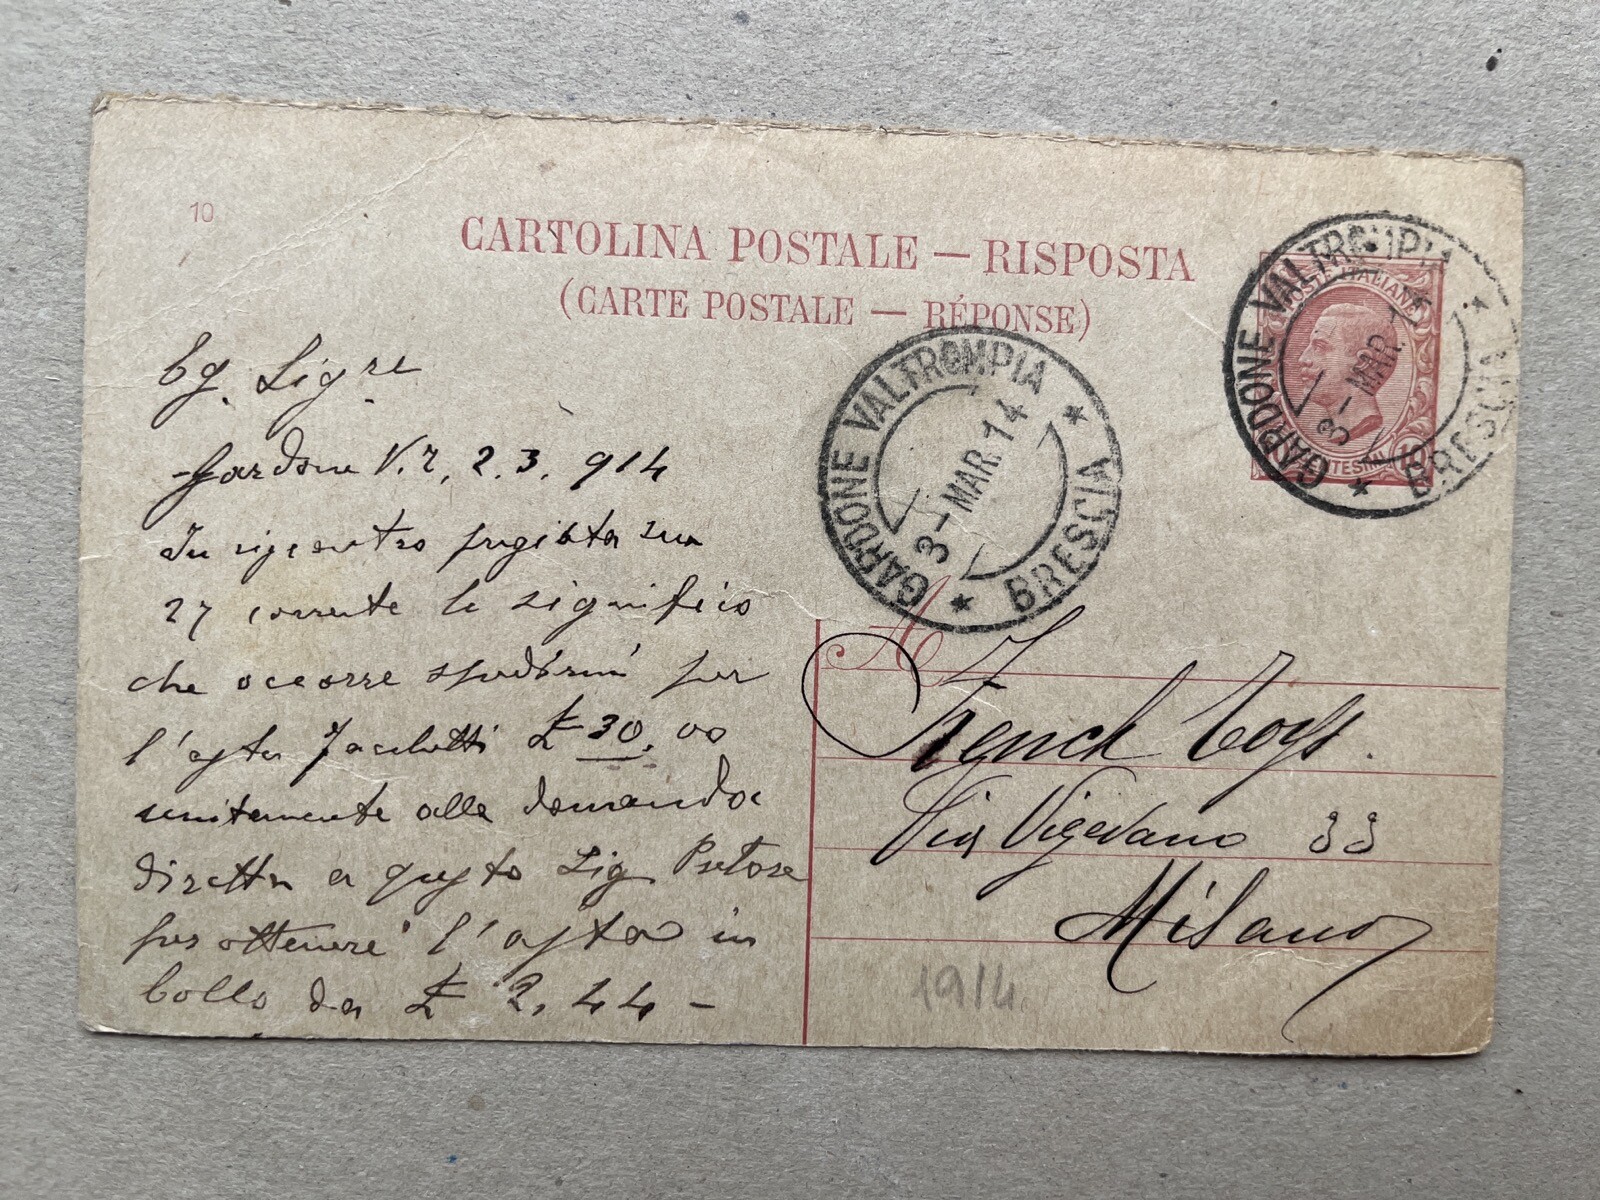 10
CARTOLINA POSTALE — RISPOSTA
(CARTE POSTALE — RÉPONSE)
POSTE ITALIANE
10
GARDONE VALTROMPIA
3 - MAR. 14
BRESCIA
GARDONE VALTROMPIA
3 - MAR. 14
BRESCIA
Eg. Sigre
Gardone V.T, 2.3.914
In riscontro pregiata sua
27 corrente le significo
che occorre spedirmi per
l'asta £ 30.00
unitamente alla domanda
diretta a questo Sig. Pretore
per ottenere l'asta in
bollo da £ 2,44 -
A
French Toys.
Via Vigevano 33
Milano
1914